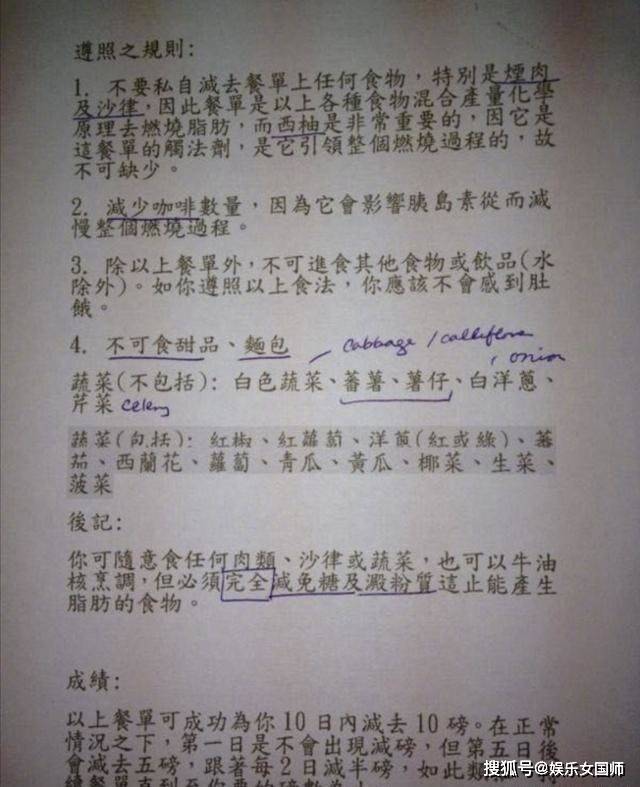 遵照之規則:
1. 不要私自減去餐單上任何食物，特別是煙肉
及沙律，因此餐單是以上各種食物混合產量化學
原理去燃燒脂肪，而西柚是非常重要的，因它是
這餐單的觸法劑，是它引領整個燃燒過程的，故
不可缺少。
2. 減少咖啡數量，因為它會影響胰島素從而減
慢整個燃燒過程。
3. 除以上餐單外，不可進食其他食物或飲品(水
除外)。如你遵照以上食法，你應該不會感到肚
餓。
4. 不可食甜品、麵包
cabbage / calliflora
, onion
蔬菜(不包括): 白色蔬菜、蕃薯、薯仔、白洋蔥、
芹菜 celery
蔬菜(包括): 紅椒、紅蘿蔔、洋茛(紅或綠)、蕃
茄、西蘭花、蘿蔔、青瓜、黃瓜、椰菜、生菜、
菠菜
後記:
你可隨意食任何肉類、沙律或蔬菜，也可以牛油
核烹調，但必須完全減免糖及澱粉質這止能產生
脂肪的食物。
成績:
以上餐單可成功為你10日內減去10磅。在正常
情況之下，第一日是不會出現減磅，但第五日後
會減去五磅，跟著每2日減半磅，如此類
搜狐号@娱乐女国师